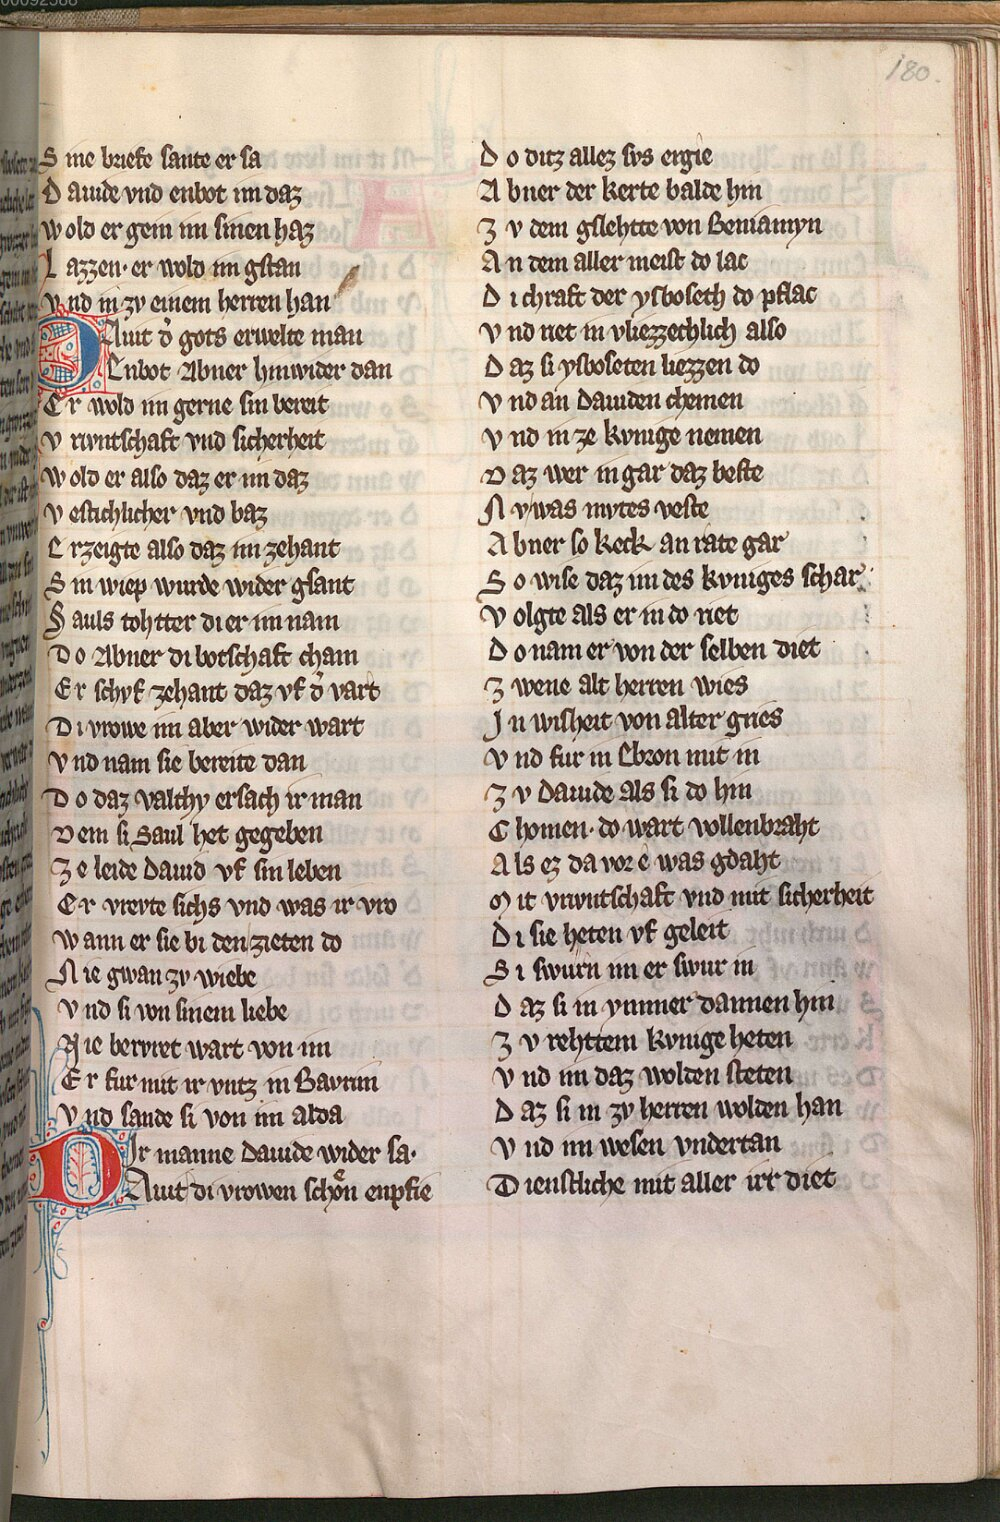 180.
S ine briefe sante er sa
D auide vnd enbot im daz
w old er gein im sinen haz
L azzen· er wold im gstan
v nd in zv einem herren han
DAuit d̄ gots erwelte man
Enbot Abner hinwider dan
Er wold im gerne sin bereit
v rivntschaft vnd sicherheit
w old er also daz er im daz
v estichlicher vnd baz
E rzeigte also daz im zehant
S in wiep wurde wider gsant
S auls tohtter di er im nam
D o Abner di botschaft cham
E r schvf zehant daz vf d̄ vart
D i vrowe im aber wider wart
v nd nam sie bereite dan
D o daz valthy ersach ir man
D em si Saul het gegeben
Z e leide Dauid vf sin leben
E r vrevte sichs vnd was ir vro
w ann er sie bi den zieten do
N ie gwan zv wiebe
v nd si von sinem liebe
N ie bervret wart von im
E r fur mit ir vntz in Bavrim
v nd sande si von im alda
Ir manne Dauide wider sa·
DAuit di vrowen schon enpfie
D o ditz allez svs ergie
A bner der kerte balde hin
Z v dem gslehtte von Beniamyn
A n dem aller meist do lac
D i chraft der ysboseth do pflac
v nd riet in vliezzechlich also
D az si ysboseten liezzen do
v nd an Dauiden chemen
v nd in ze kvnige nemen
D az wer in gar daz beste
N v was mvtes veste
A bner so keck an rate gar
S o wise daz im des kvniges schar
v olgte als er in do riet
D o nam er von der selben diet
Z wene alt herren wies
I n wisheit von alter gries
v nd fur in Ebron mit in
Z v Dauide als si do hin
C homen· do wart vollenbraht
A ls ez da vor e was gdaht
M it vrivntschaft vnd mit sicherheit
D i sie heten vf geleit
S i swurn im er swur in
D az si in ymmer dannen hin
Z v rehttem kvnige heten
v nd im daz wolden steten
D az si in zv herren wolden han
v nd im wesen vndertan
D ienstliche mit aller irr diet